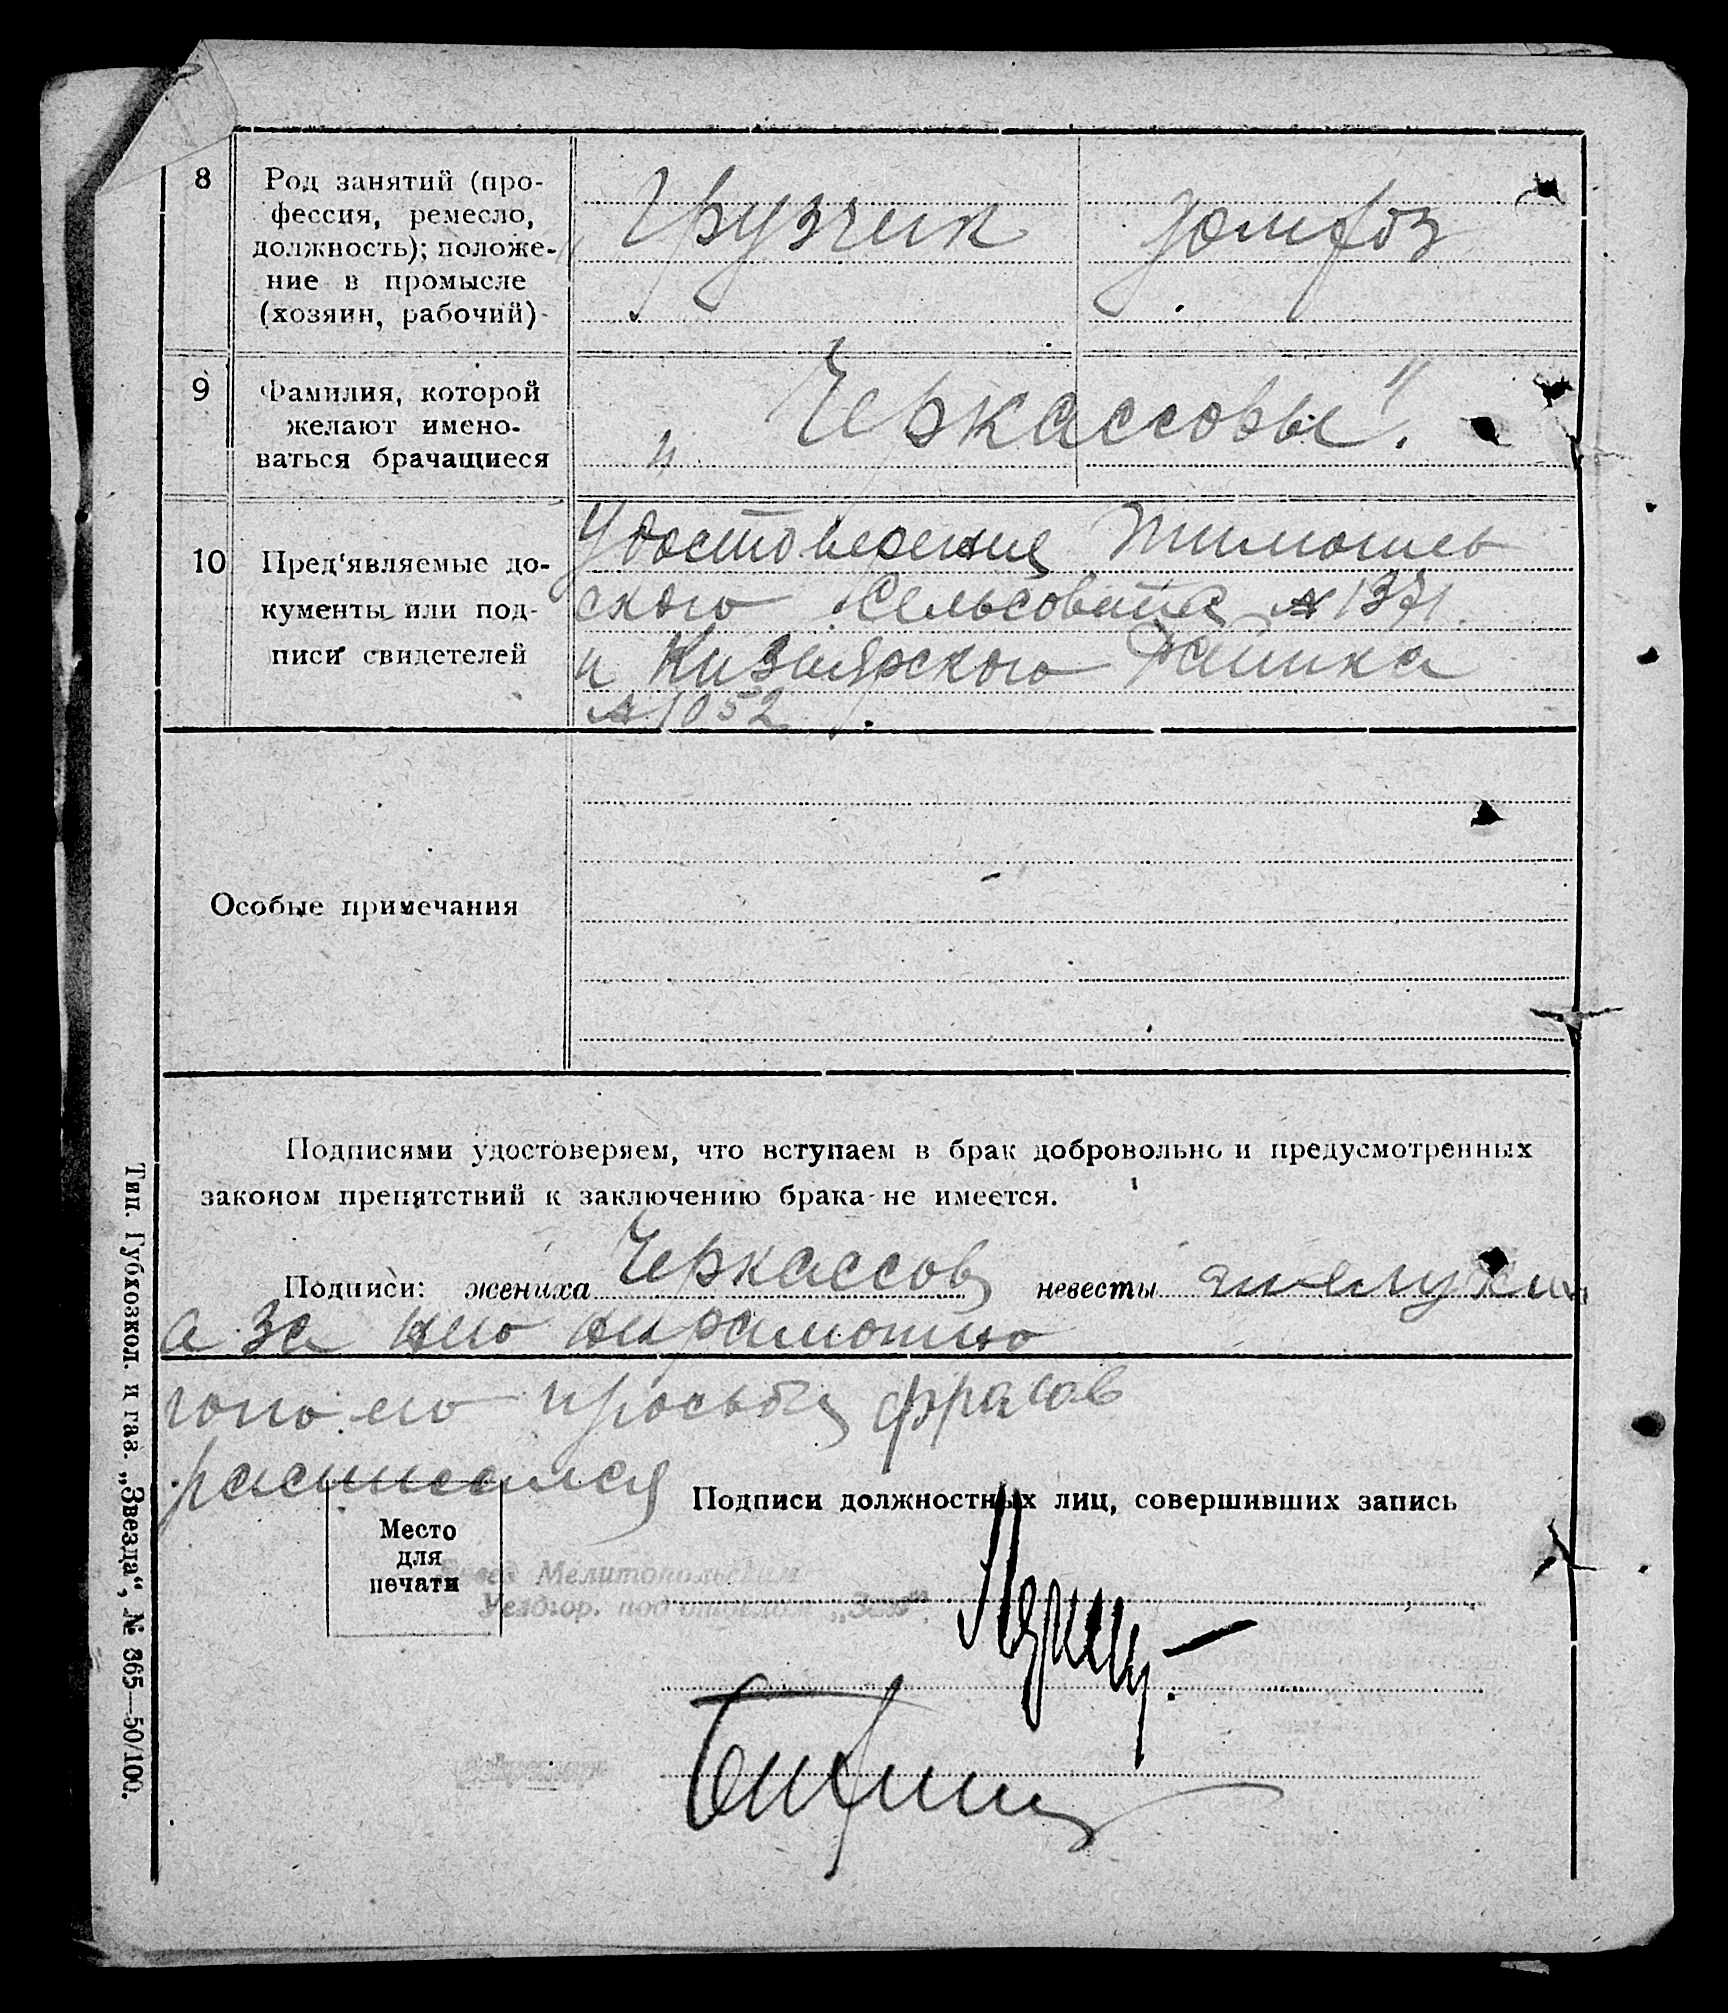 8
Род занятий (про-
фессия, ремесло,
должность); положе-
ние в промысле
(хозяин, рабочий)
Грузчик
9
Фамилия, которой
желают имено-
ваться брачащиеся
„Черкассовы".
10
Пред'являемые до-
кументы или под-
писи свидетелей
Удостоверение
ского Сельсовета № 1371
и Кизиярского Райика
№ 1052
Особые примечания
Подписями удостоверяем, что вступаем в брак добровольно и предусмотренных
законом препятствий к заключению брака не имеется.
Подписи: жениха Черкассов невесты
а за нею
просьбе
расписался
Подписи должностных лиц, совершивших запись
Место
для
печати
Завед Мелитопольским
Уездгор. под отделом „Загс".
Тип. Губхозкол. и газ. „Звезда“, № 365—50/100.